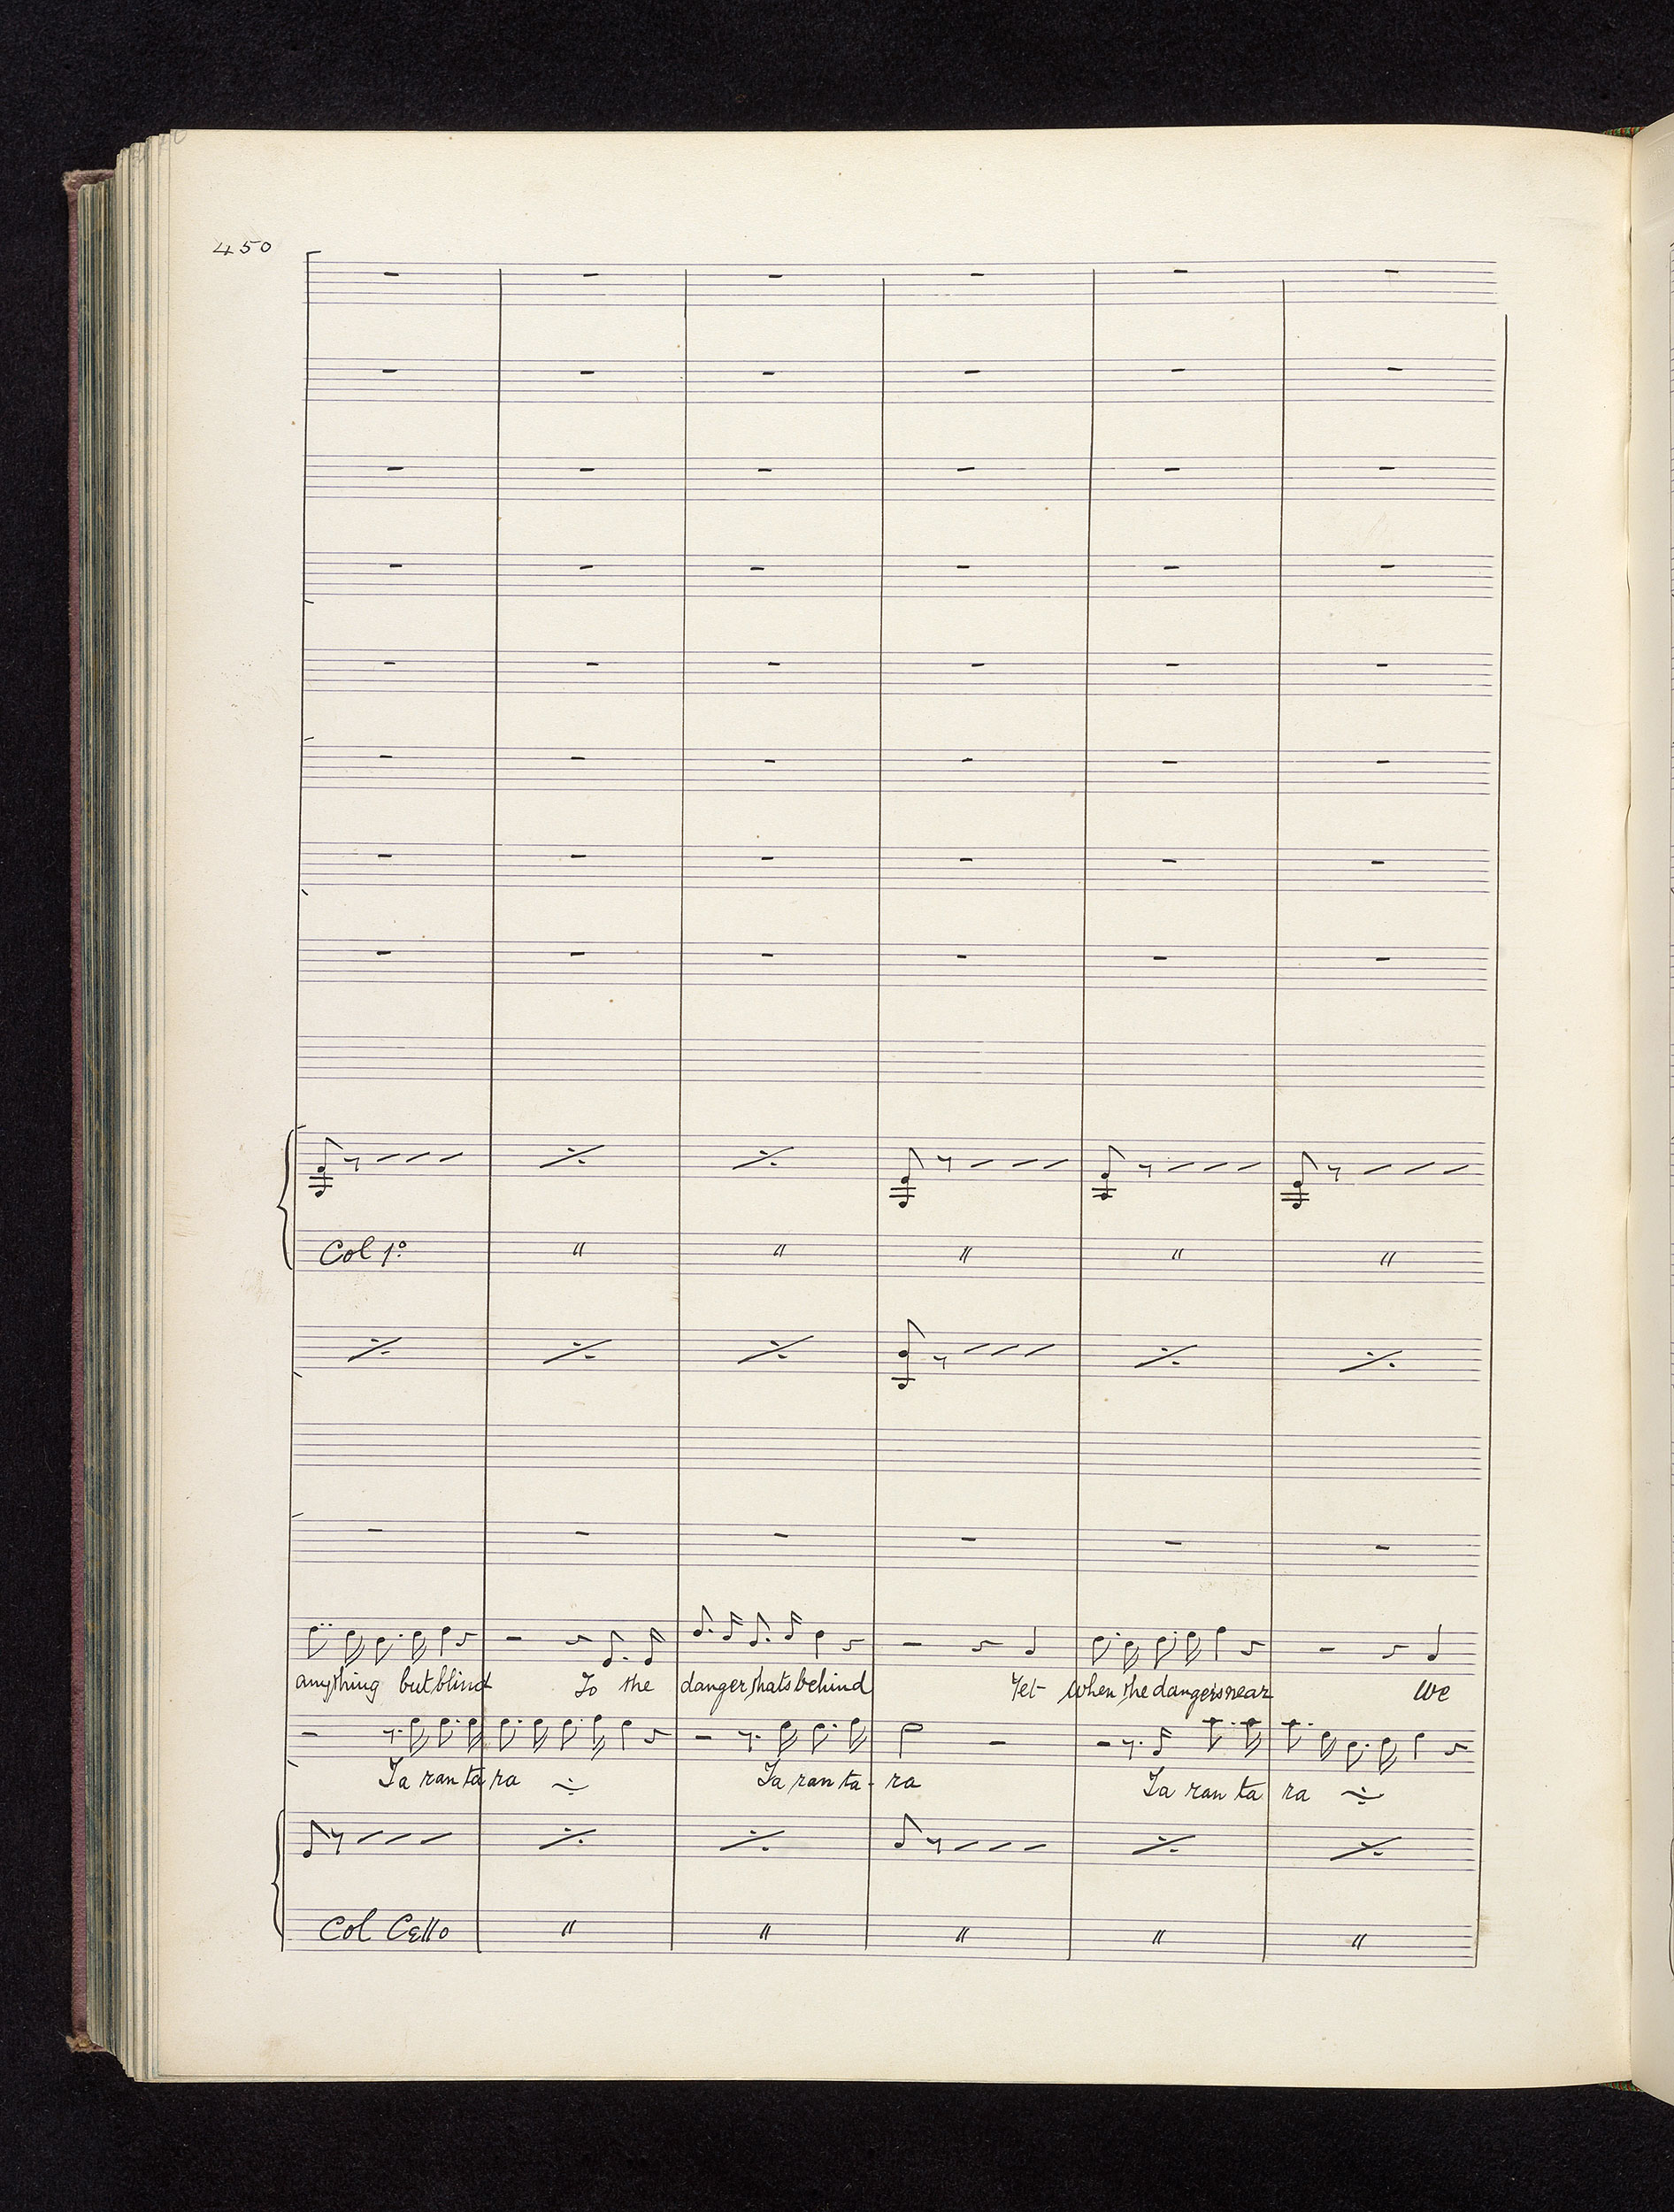 450
Col 1º
anything but blind To the danger thats behind Yet when the dangers near We
Ta ran ta ra Ta ran ta - ra Ta ran ta ra
Col Cello